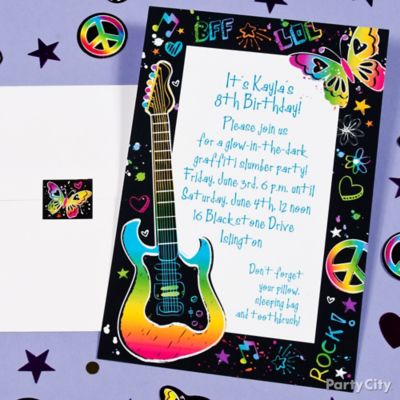 BFF LOL
It's Kayla's
8th Birthday!
Please join us
for a glow-in-the-dark
graffiti slumber party!
Friday, June 3rd, 6 p.m. until
Saturday, June 4th, 12 noon
16 Blackstone Drive
Islington
Don't forget
your pillow,
sleeping bag
and toothbrush!
ROCK!
PartyCity